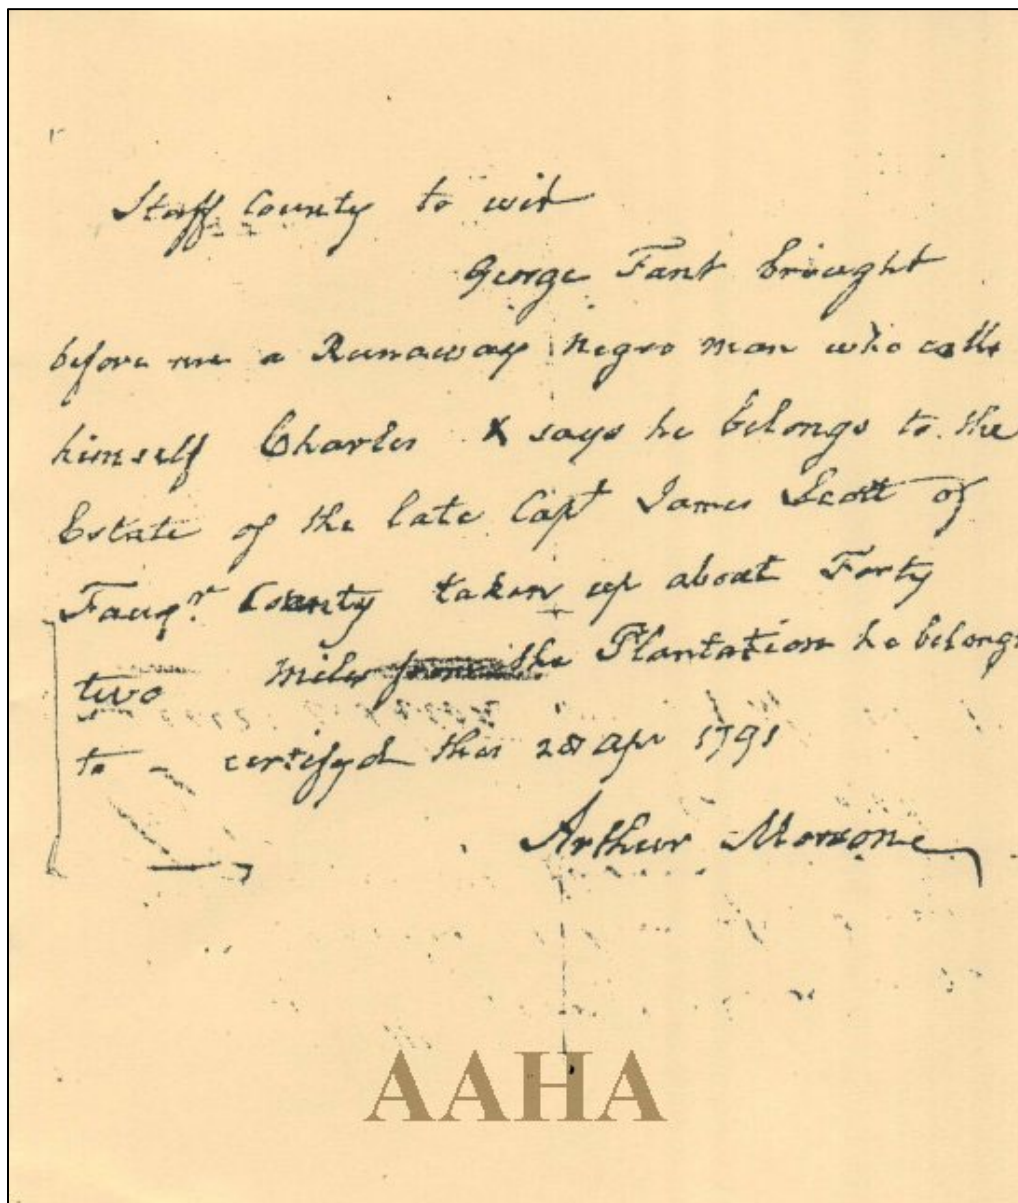 Staff County to wit
George Fant brought
before me a Runaway Negro man who calls
himself Charles & says he belongs to the
Estate of the late Capt James Scott of
Fauqr County taken up about Forty
two miles from the Plantation he belongs
to - certifyd this 28 Apr 1791
Arthur Morson
AAHA